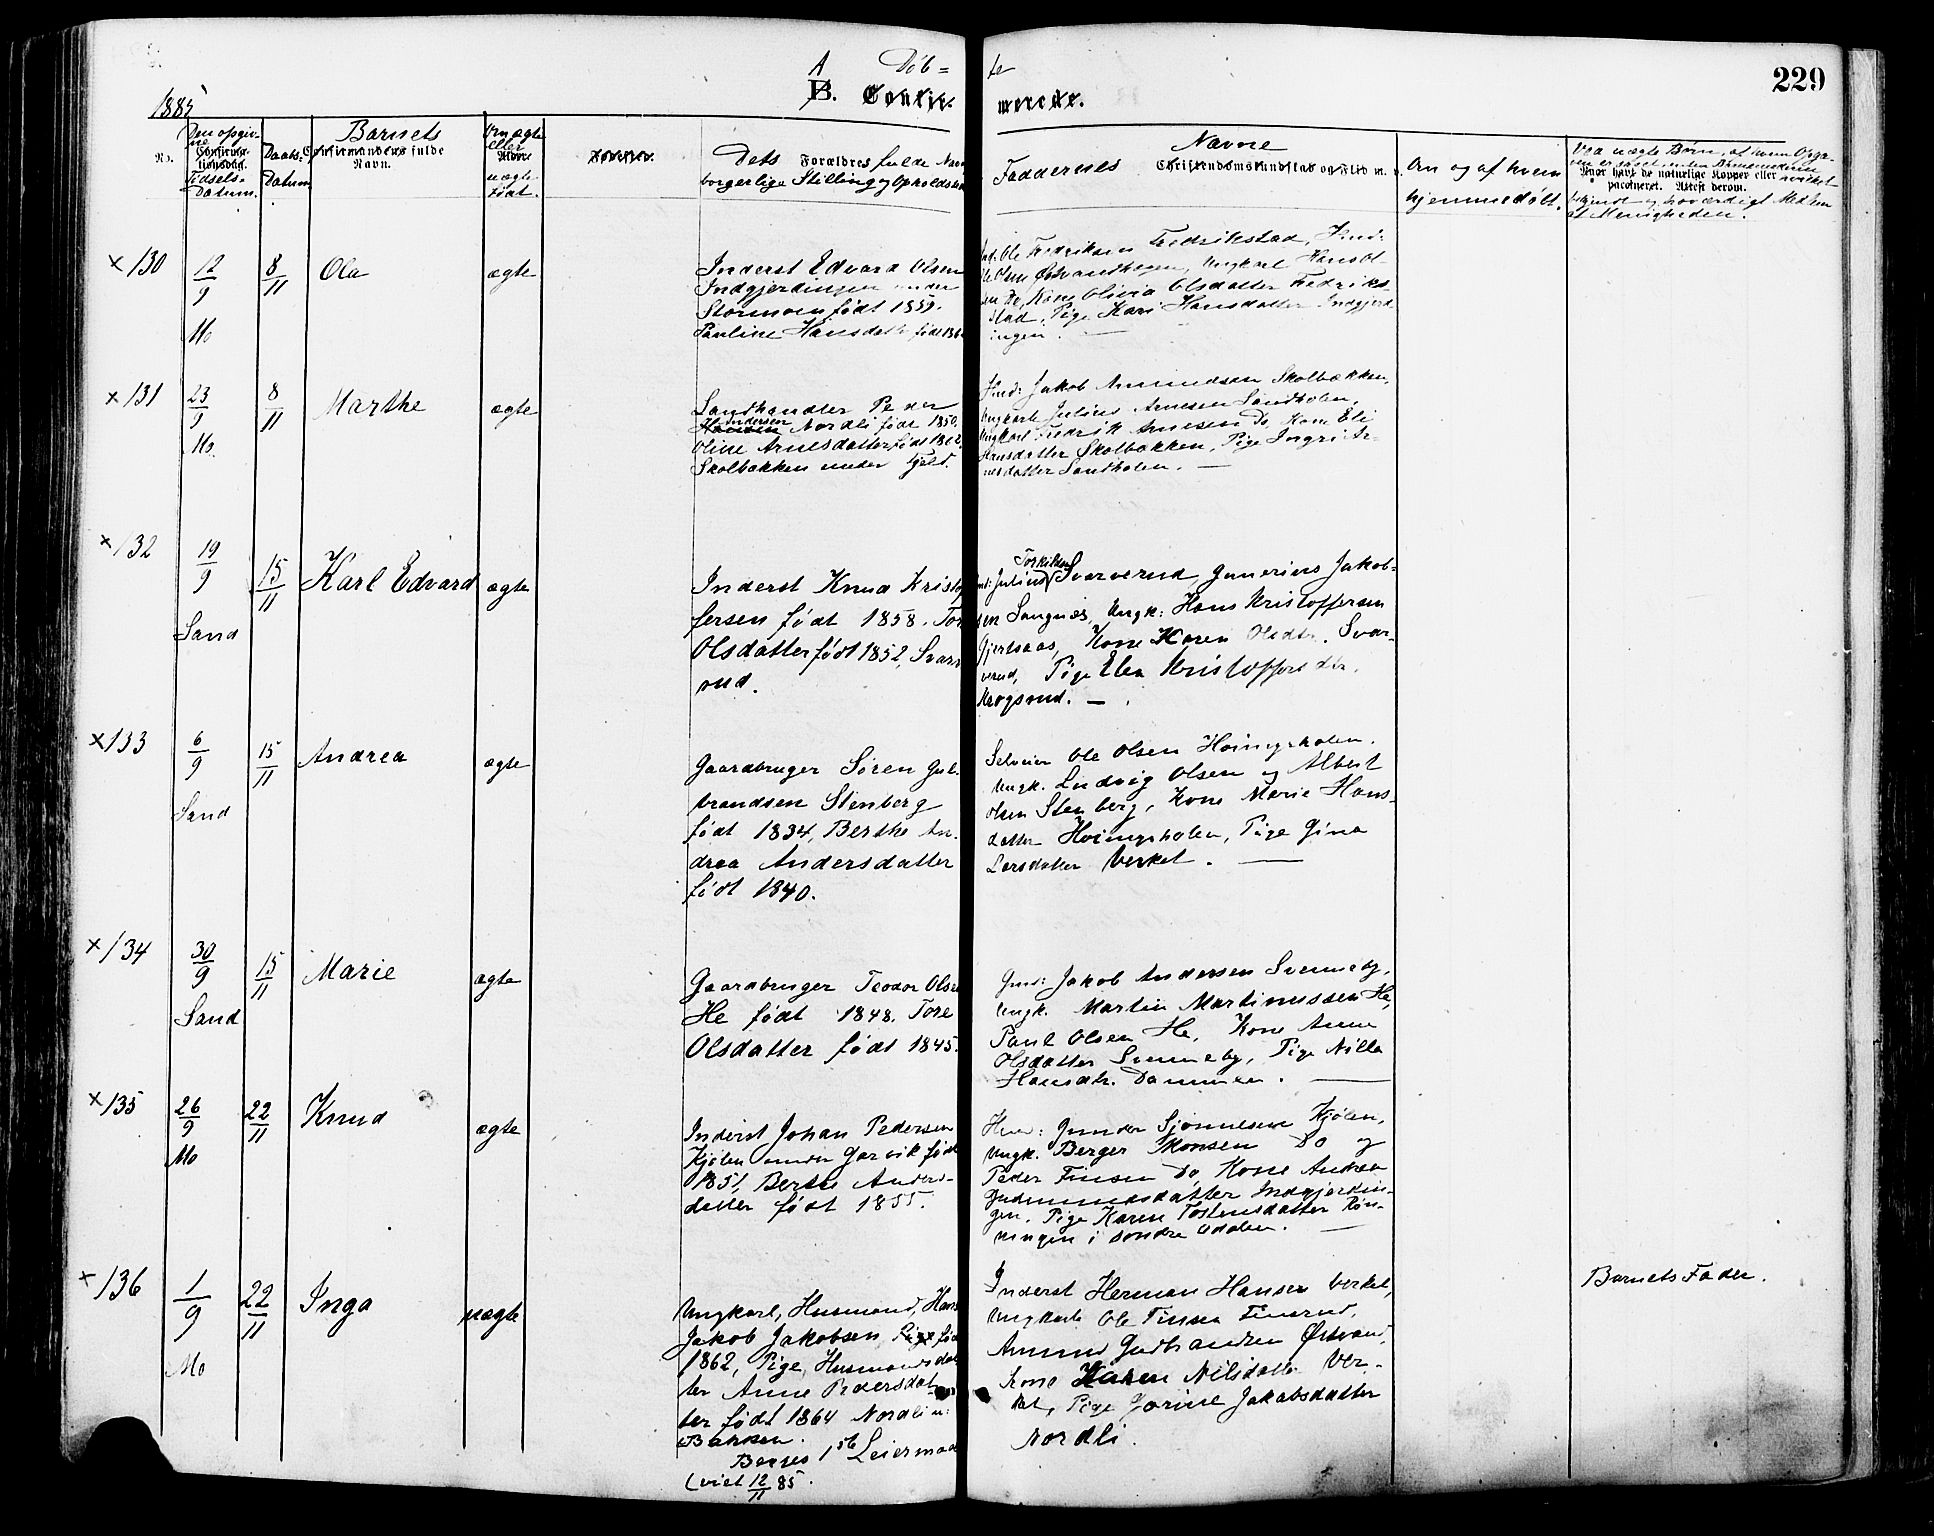 A Døb= te
B. Confir- merede.
229
1885
No.
Den opgiv-
ne
Confirma-
tionsdag.
Fødsels-
Datum.
Daabs-
Datum
Barnets
Confirmandens fulde
Navn.
Om ægte
eller
Alder
uægte
født.
Dets Forældres fulde Navn
borgerlige Stilling og Opholdssted
Navne
Faddernes Christendomskundskab og Flid m. m.
Om og af hvem
hjemmedøbt.
Ved uægte Børn, af hvem Opga-
Naar havt de naturlige Kopper eller
vaccineret. Attest derom.
bekjendt og troværdigt Medlem
af Menigheden.
x 130
12/9
Mo
8/11
Ole
ægte
Inderst Edvard Olsen
Indgjerdingen under
Stormoen født 1859.
Pauline Hansdatter født 186
Ole Fredriksen Fredrikstad, Husm:
Ole Olsen Østvandhagen, Ungkarl Hans Ol
sen Do, Kone Olivia Olsdatter Fredrik-
stad, Pige Kari Hansdatter Indgjerd
ingen. —
x 131
23/9
Mo.
8/11
Marthe
ægte
Landhandler Peder
Andersen
Hansen Nordli født 1850,
Oline Arnesdatter født 1862
Skolbækken under Gjeld.
Husm: Jakob Amundsen Skolbækken,
Ungkarl Julius Arnesen Sandholen,
Ungkarl Fredrik Arnesen Do, Kone Eli
Arnesdatter Skolbækken, Pige Ingri Ar-
nesdatter Sandholen. —
x 132
19/9
Sand
15/11
Karl Edvard
ægte
Inderst Knud Kristof
fersen født 1858. Tor
Olsdatter født 1852, Svarv
rud.
Torkildsen
Julius Svarverud, Gunerius Jakob-
sen Sangnes, Ungk: Hans Kristoffersen
Gjertsaas, Kone Karen Olsdtr. Svar-
verud, Pige Elen Kristoffersdtr.
Krogsrud. —
x 133
6/9
Sand
15/11
Andrea
ægte
Gaardbruger Søren Gul-
brandsen Stenberg
født 1834, Berthe An-
drea Andersdatter
født 1840.
Selveier Ole Olsen Hoiingsholen.
Ungk. Ludvig Olsen og Albert
Olsen Stenberg, Kone Marie Hans-
datter Hoiingsholen, Pige Gina
Larsdatter Verket. —
x 134
30/9
Sand
15/11
Marie
ægte
Gaardbruger Teodor Olsen
He født 1848. Tore
Olsdatter født 1845.
Gmd: Jakob Andersen Svenneby,
Ungk. Martin Martinussen He,
Paul Olsen He, Kone Anne
Olsdatter Svenneby, Pige Nilla
Hansdtr. Dammen. —
x 135
26/9
Mo
22/11
Knud
ægte
Inderst Johan Pedersen
Kjølen under Gorvik født
1851, Berthe Anders-
datter født 1855.
Husm: Gunder Sjønnesen Kjølen,
Ungk. Berger Monsen Do og
Peder Finsen Do, Kone Andrea
Gudmundsdatter Indgjerdin-
gen, Pige Karen Tostensdatter Røn-
ningen i Søndre Odalen. —
x 136
1/9
Mo
22/11
Inga
uægte
Ungkarl, Husmand, Hans
Jakob Jakobsen, Pige fød
1862, Pige, Husmandsdat
ter Anne Pedersdat
ter født 1864 Nordli u:
Bakken.
Begges 1ste Leiermaal
(viet 12/11 85.
Inderst Herman Hansen Verket,
Ungkarl Ole Finsen Finsrud,
Amund Gudbrandsen Østvand,
Kone Karen Nilsdatter Ver-
ket, Pige Jorine Jakobsdatter
Nordli.
Barnets Fader.